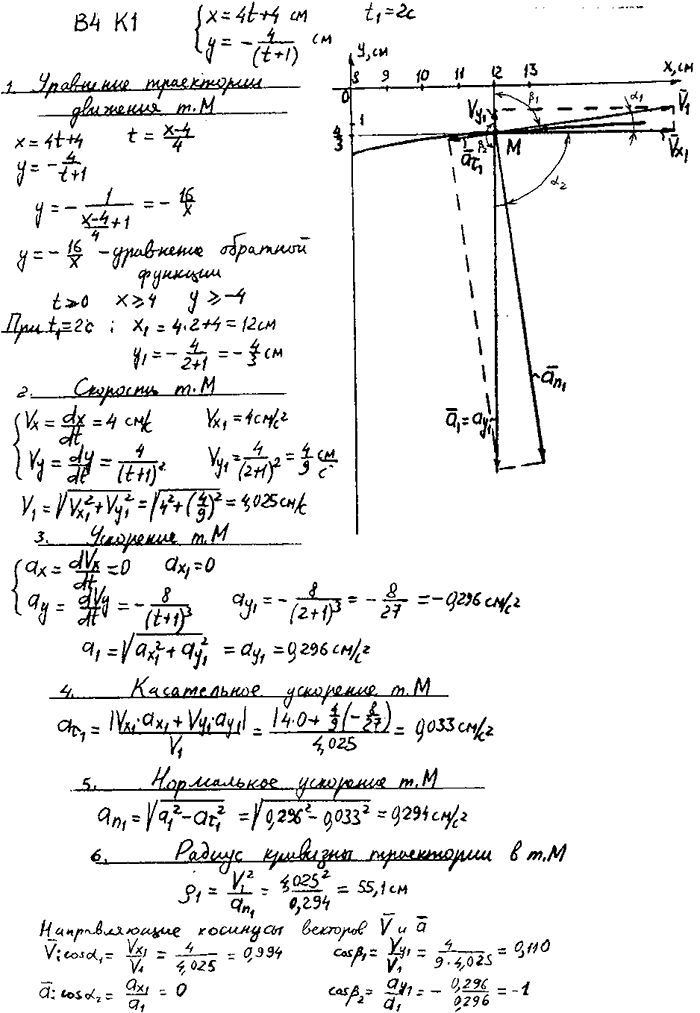 В4 К1
{ x = 4t+4 см
y = -4/(t+1) см
t₁ = 2с
1. Уравнение траектории
движения т.М
x = 4t+4 t = (x-4)/4
y = -4/(t+1)
y = -1/((x-4)/4+1) = -16/x
y = -16/x - уравнение обратной
функции
t ≥ 0 x ≥ 4 y ≥ -4
При t₁=2с : x₁ = 4·2+4 = 12см
y₁ = -4/(2+1) = -4/3 см
2. Скорость т.М
{ Vx = dx/dt = 4 см/с Vx₁ = 4см/с²
Vy = dy/dt = 4/(t+1)² Vy₁ = 4/(2+1)² = 4/9 см/с
V₁ = √(Vx₁²+Vy₁²) = √(4²+(4/9)²) = 4,025см/с
3. Ускорение т.М
{ ax = dVx/dt = 0 ax₁ = 0
ay = dVy/dt = -8/(t+1)³ ay₁ = -8/(2+1)³ = -8/27 = -0,296 см/с²
a₁ = √(ax₁²+ay₁²) = ay₁ = 0,296 см/с²
4. Касательное ускорение т.М
aτ₁ = |Vx₁·ax₁+Vy₁·ay₁|/V₁ = |4·0+4/9(-8/27)|/4,025 = 0,033см/с²
5. Нормальное ускорение т.М
an₁ = √(a₁²-aτ₁²) = √(0,296²-0,033²) = 0,294см/с²
6. Радиус кривизны траектории в т.М
ρ₁ = V₁²/an₁ = 4,025²/0,294 = 55,1см
Направляющие косинусы векторов V̄ и ā
V̄: cosα₁ = Vx₁/V₁ = 4/4,025 = 0,994 cosβ₁ = Vy₁/V₁ = 4/(9·4,025) = 0,110
ā: cosα₂ = ax₁/a₁ = 0 cosβ₂ = ay₁/a₁ = -0,296/0,296 = -1
y,см
x,см
8 9 10 11 12 13
0
1
4/3
Vy₁
β₁
α₁
V̄₁
β₂
āτ₁
M
V̄x₁
α₂
ān₁
ā₁=ay₁